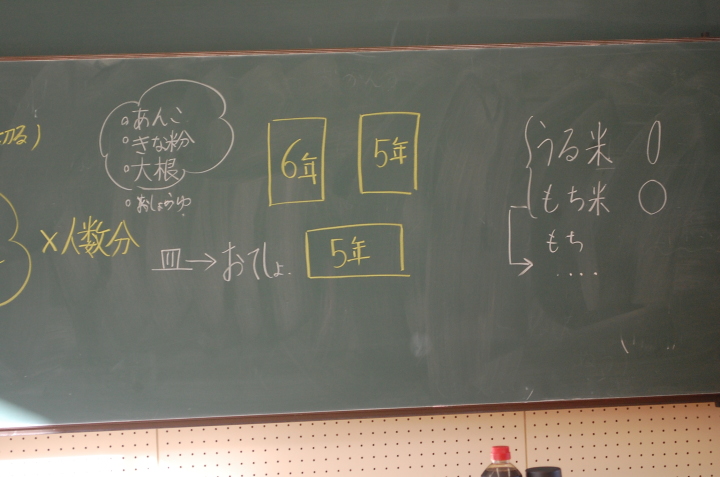 切る)
×人数分
。あんこ
。きな粉
。大根
。おしょうゆ
皿→おてしょ.
6年
5年
5年
うる米
もち米
もち
....